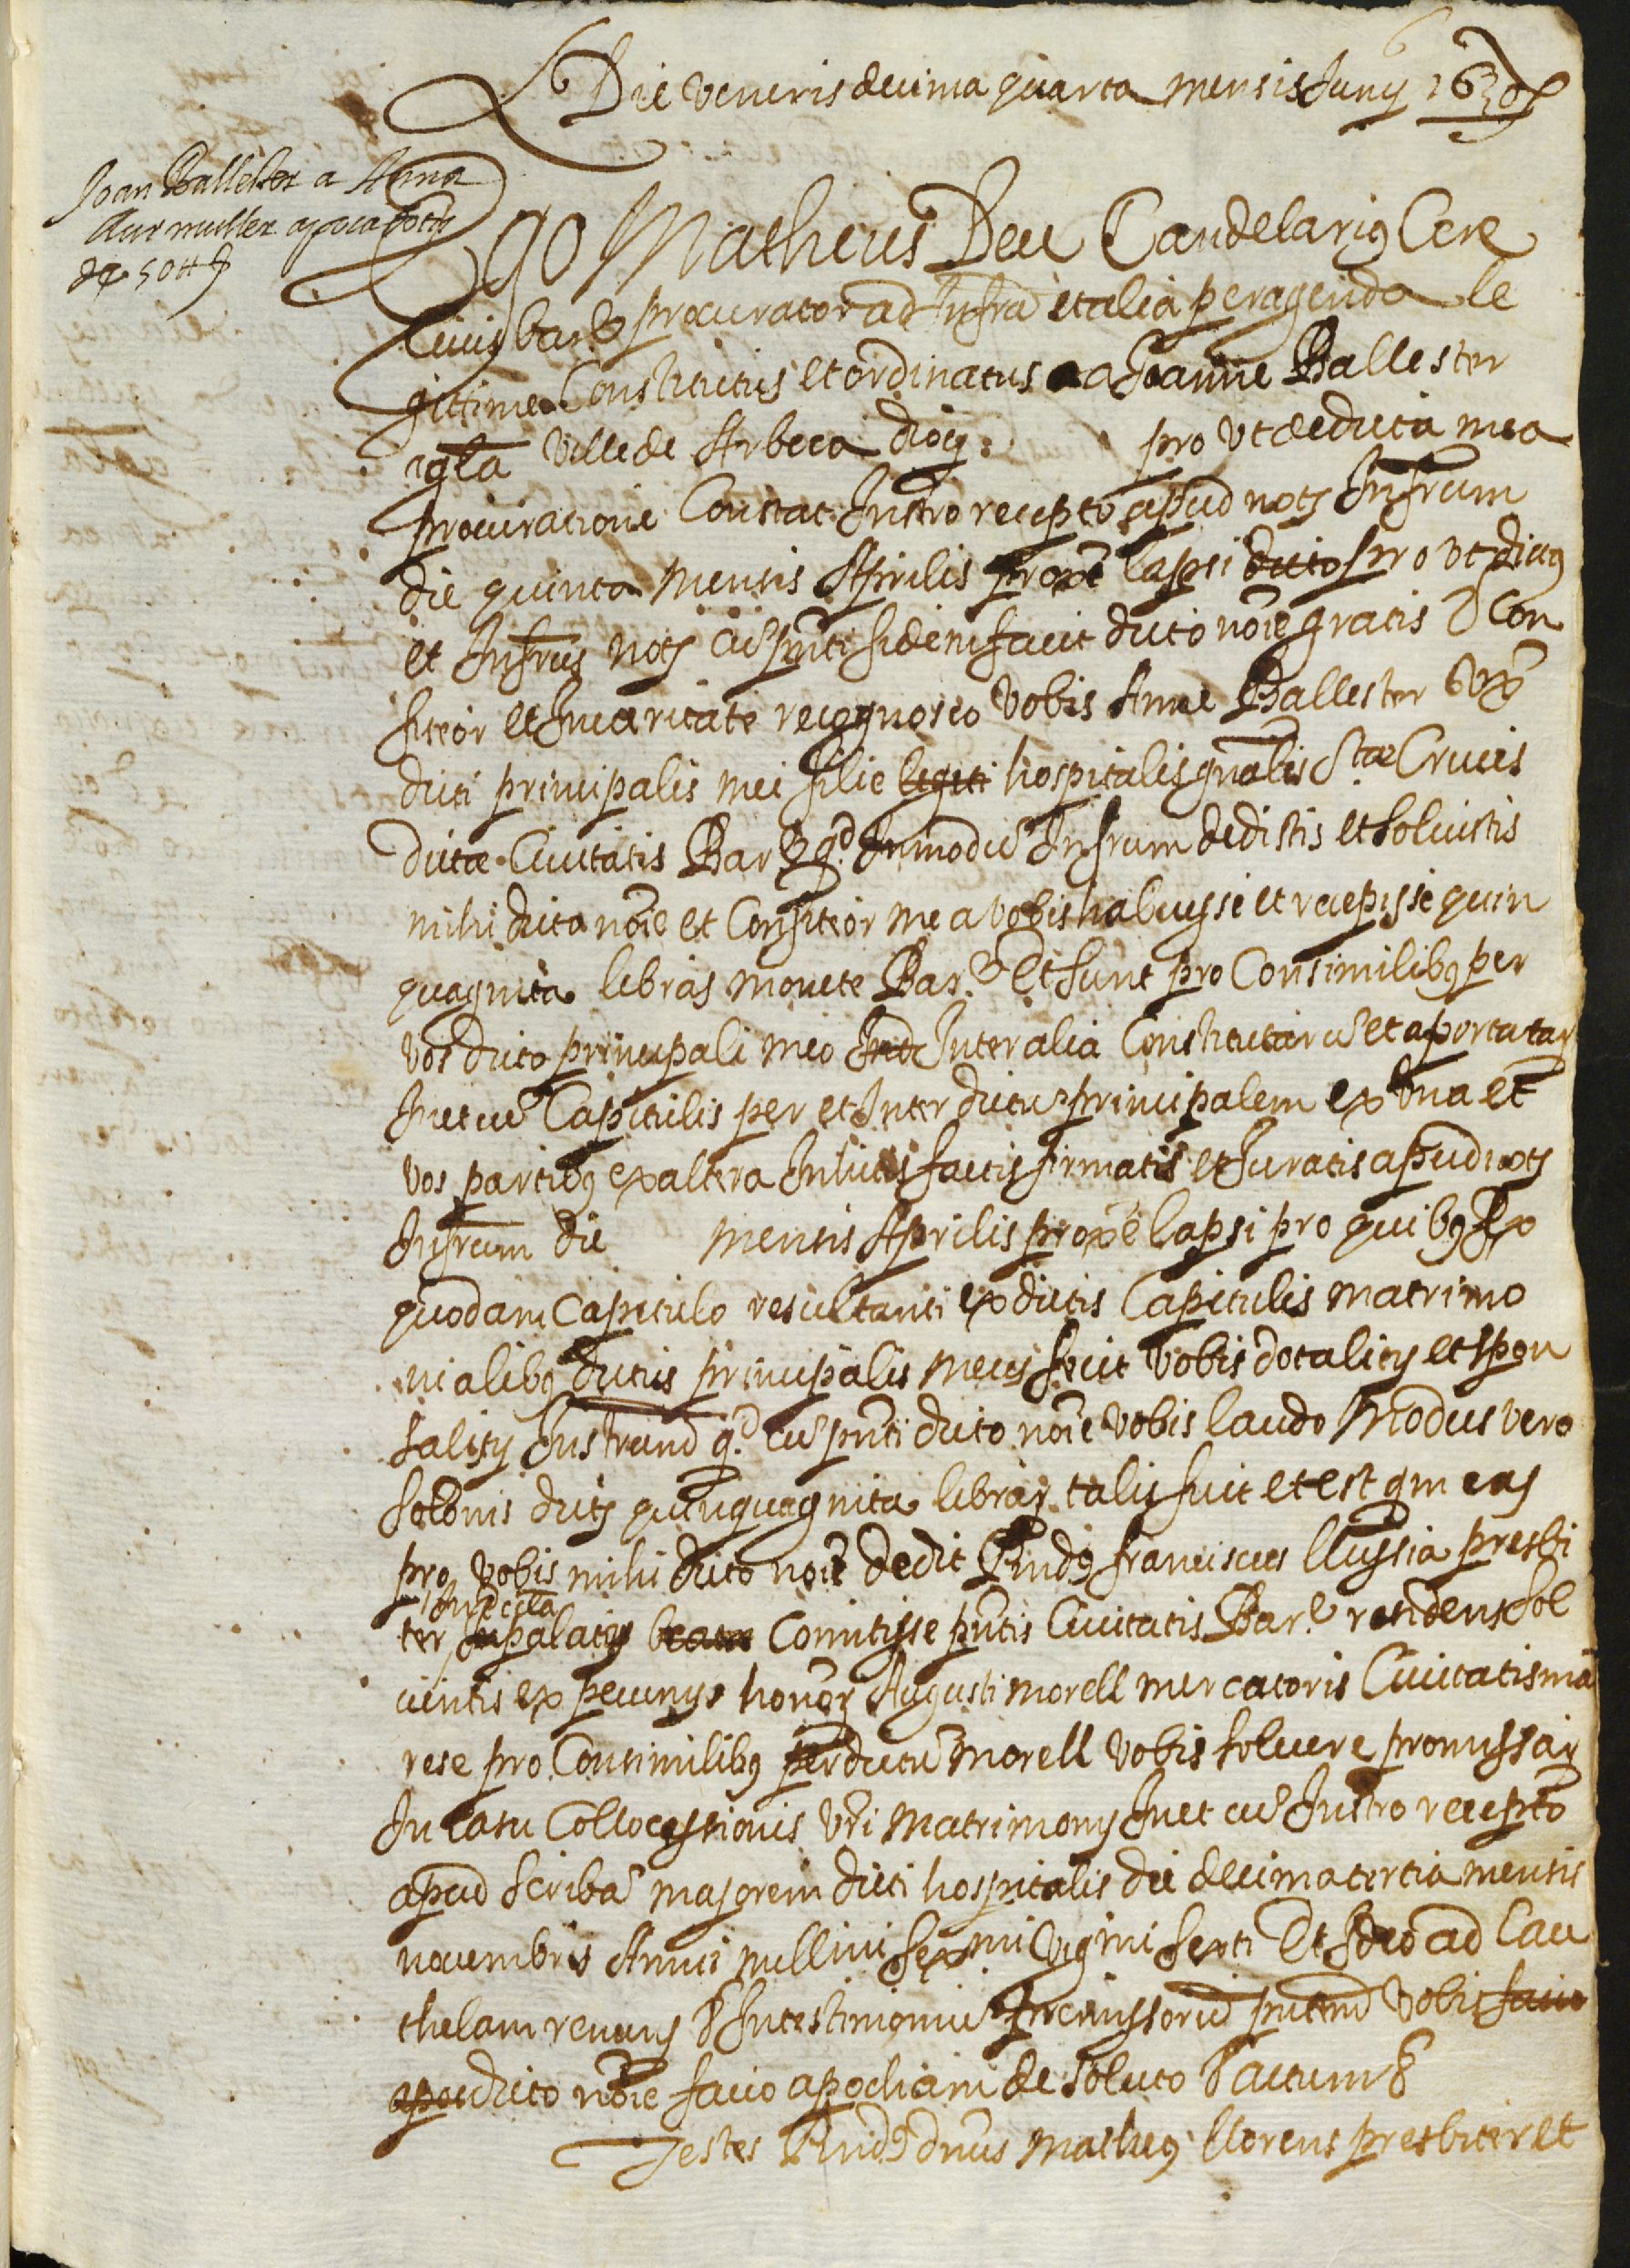 Die veneris decima quarta mensis Junij 1630
Joan Ballester a Anna
muller apoca dotis
de 50 ₶
Ego Matheus Deu Candelariꝰ Cere
Civis barꝫ procurator ad infra et alia peragenda le
gittime Constitutus et ordinatus a Joanne Ballester
agla Ville de Arbeca diocꝫ: pro ut de dicta mea
procuratione Constat Instrō recepto apud notꝫ Infrum
die quinta mensis Aprilis proxē lapsi dicto pro ut dictꝰ
et Infrus notꝫ cū pñti fidem facit dicto noīe gratis & Con
fiteor et In veritate recognosco vobis Anne Ballester uxꝫ
dicti principalis mei filie legiti hospitalis gñalis Stae Crucis
dictae Civitatis Barꝫ qd In modū Infrum dedistis et solvistis
mihi dicto noīe et Confiteor me a vobis habuysse et recepisse quin
quaginta libras monete Barꝫ Et sunt pro Consimilibꝰ per
vos dicto principali meo Inter alia Constitutar cū et aportatar
Inet cū Capitulis per et Inter dictū principalem ex una et
vos partibꝰ ex altera Inhitis factis firmatis et Juratis apud notꝫ
Infrum die mensis Aprilis proxē lapsi pro quibꝰ Ex
quodam Capitulo resultanti ex dictis Capitulis matrimo
nialibꝰ dictus principalis meus fecit vobis dotalitꝫ et spon
salitꝫ Instrumd qd cū pñti dicto noīe vobis laudo Modus vero
solōnis dictꝫ quinquaginta librar talis fuit et est qm eas
pro vobis mihi dicto noīe dedit Rndꝰ franciscus llussia presbi
In ecclā
ter palatij beatae Comitisse pñtis Civitatis Barꝫ residens sol
ventis ex pecunijs honorꝫ Augusti morell mercatoris Civitatis mā
rese pro Consimilibꝰ per dictū morell vobis solvere promissar
In Casu Collocassionis vri Matrimonij Inet cū Instrō recepto
apud scribā majorem dicti hospitalis die decima tertia mensis
novembris Anni millimi sexmi vigmi sexti Et Ideo ad Cau
thelam renuns & In testimonium premissorū pñtem vobis facio
apo dicto noīe facio apocham de soluto & actum &
Testes Rndꝰ dnūs matheꝰ llorens presbiter et